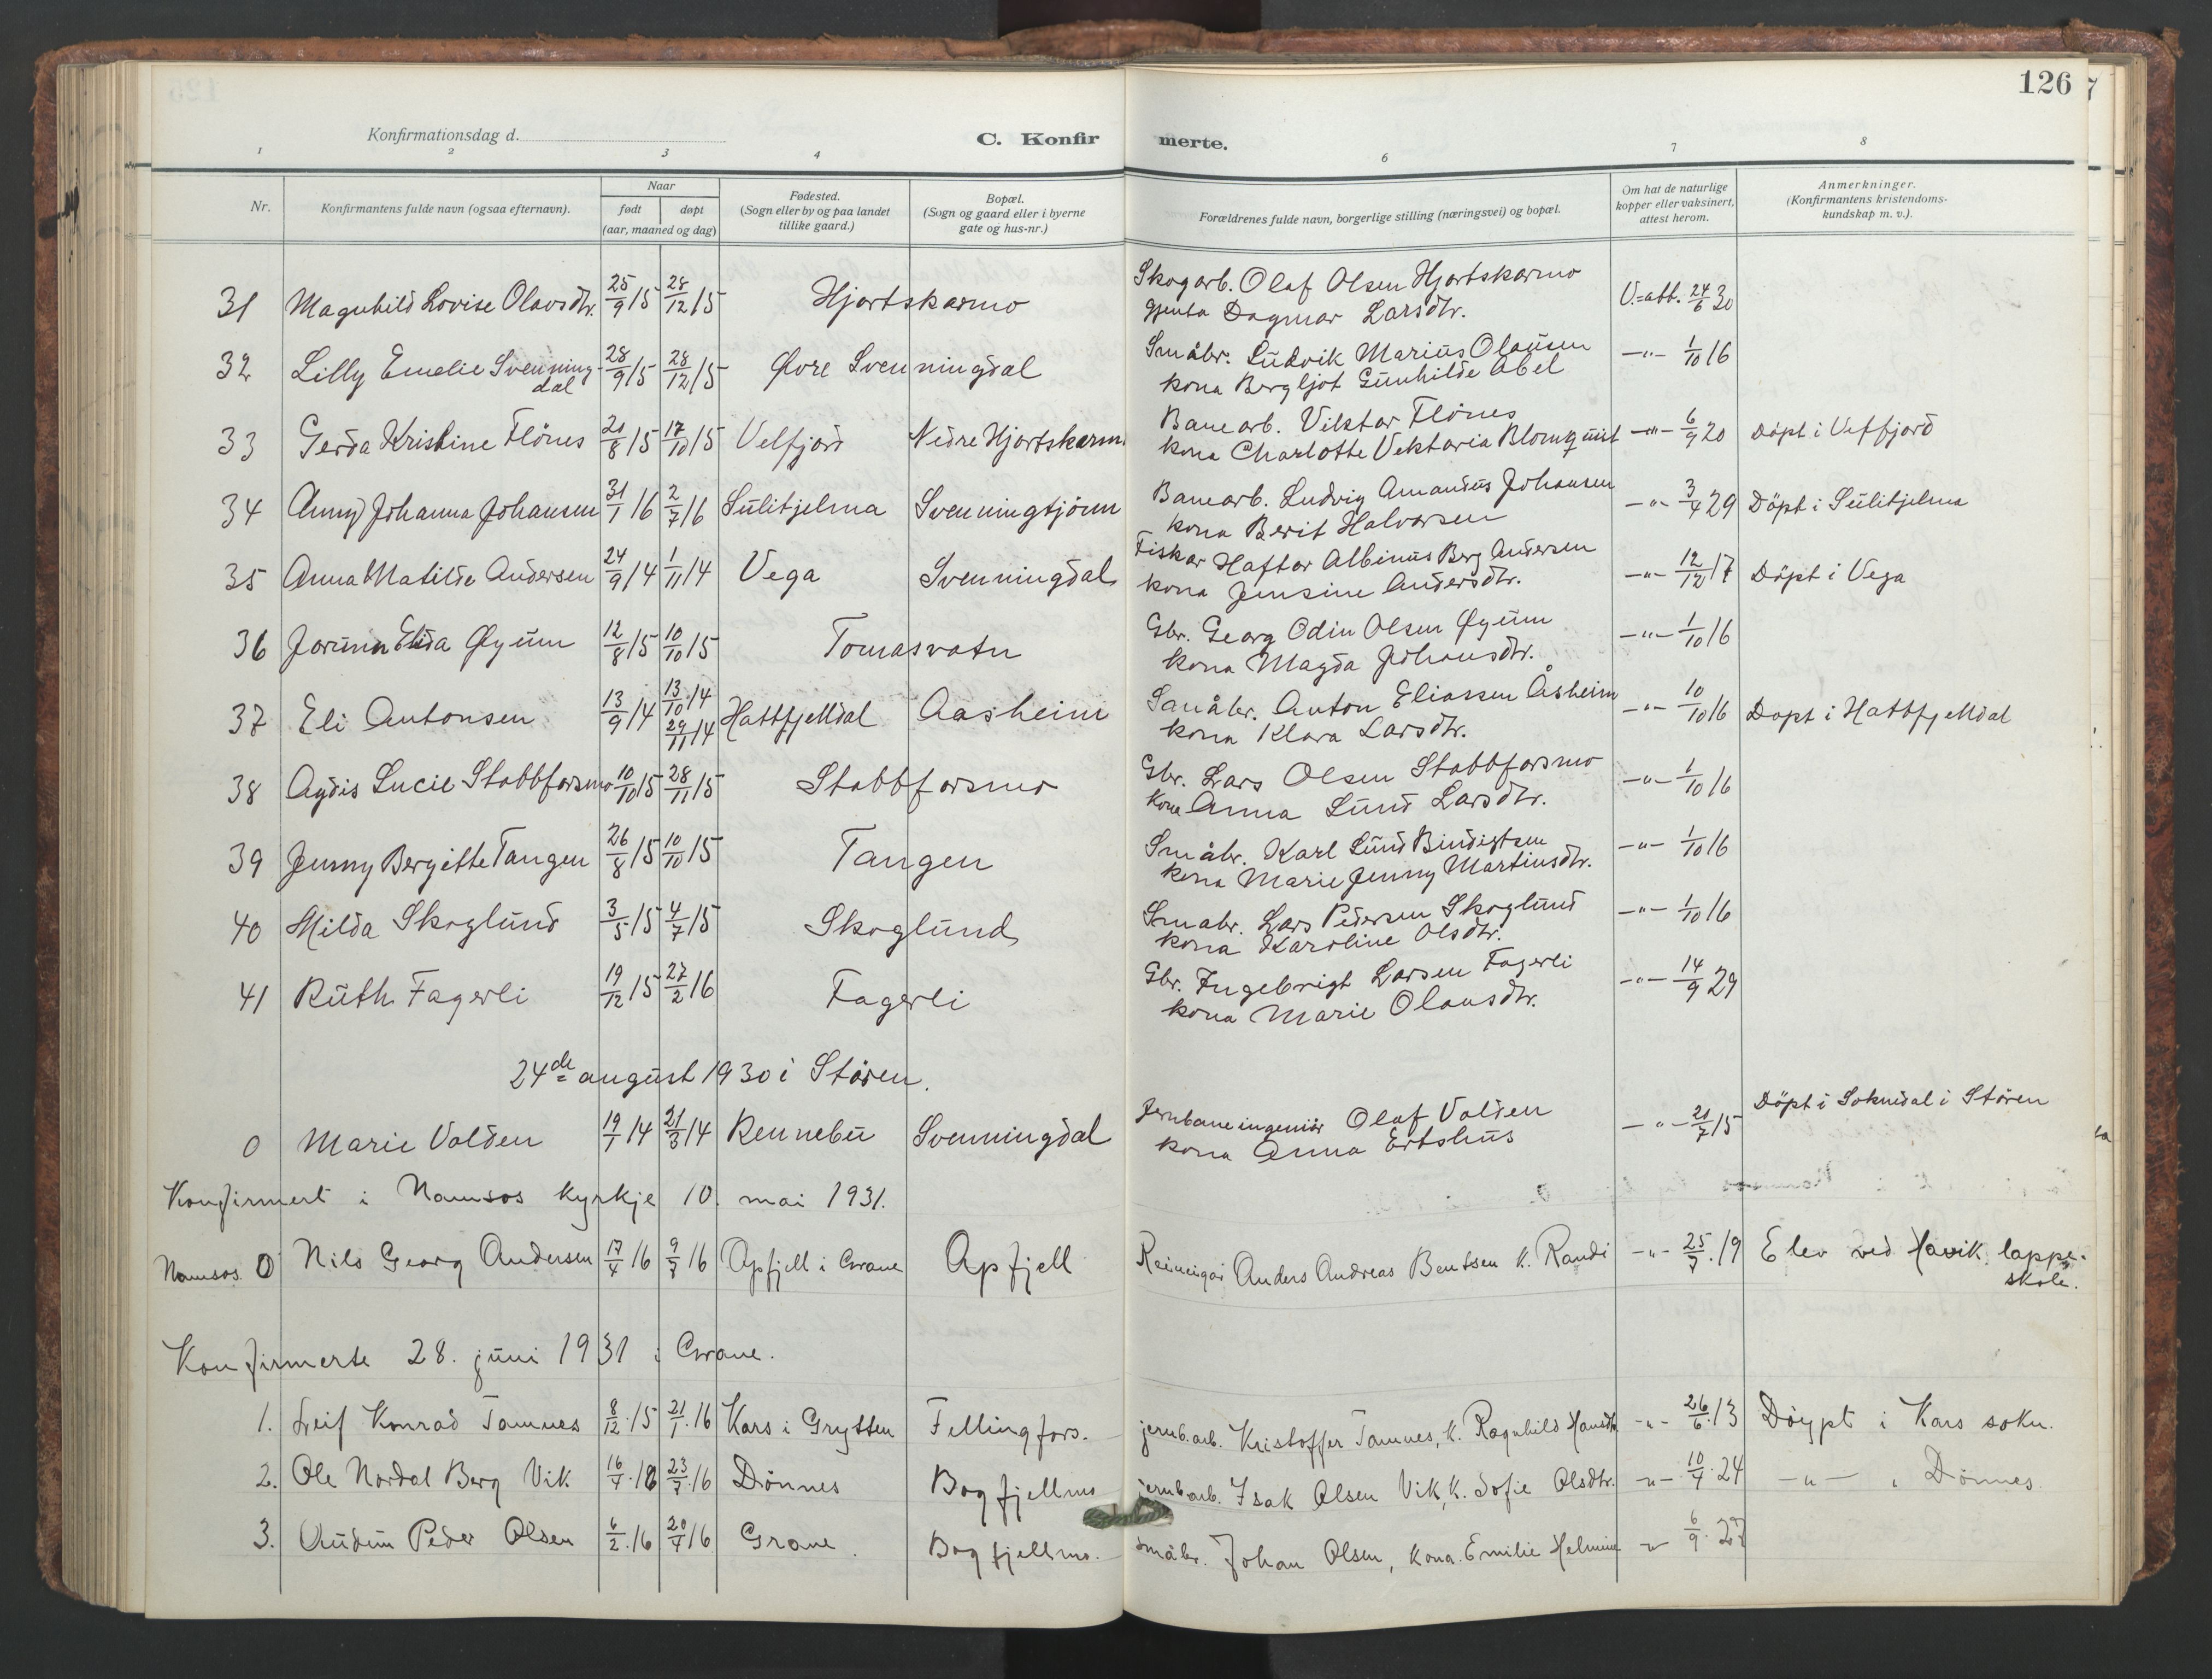 126
Konfirmationsdag d.
C. Konfirmerte.
1 2 3 4 6 7 8
Nr.
Konfirmantens fulde navn (ogsaa efternavn).
Naar
født døpt
(aar, maaned og dag)
Fødested.
(Sogn eller by og paa landet
tillike gaard.)
Bopæl.
(Sogn og gaard eller i byerne
gate og hus-nr.)
Forældrenes fulde navn, borgerlige stilling (næringsvei) og bopæl.
Om hat de naturlige
kopper eller vaksinert,
attest herom.
Anmerkninger.
(Konfirmantens kristendoms-
kundskap m. v.).
31 Magnhild Lovise Olavsdtr. 25/9 15 28/12 15 Hjortskarmo Skogarb. Olaf Olsen Hjortskarmo V.=att. 24/6 30
gjenta Dagmar Larsdtr.
32 Lilly Emelie Svenning- 28/9 15 28/12 15 Øvre Svenningdal Småbr. Ludvik Marius Olausen -"- 1/10 16
dal kona Bergljot Gunhilde Abel
33 Gerda Kristine Flönes 20/8 15 17/10 15 Velfjord Nedre Hjortskarm. Banearb. Viktor Flönes -"- 6/9 20 Döpt i Velfjord
kona Charlotte Vektoria Blomquist
34 Anny Johanna Johansen 31/1 16 2/7 16 Sulitjelma Svenningtjönn Banearb. Ludvig Amandus Johansen -"- 3/4 29 Döpt i Sulitjelma
kona Berit Halvorsen
35 Anna Matilde Andersen 24/9 14 1/11 14 Vega Svenningdal Fiskar Haftor Albinus Berg Andersen -"- 12/12 17 Döpt i Vega
kona Jensine Andersdtr.
36 Jorunn Elida Øyum 12/8 15 10/10 15 Tomasvatn Gbr. Georg Odin Olsen Øyum -"- 1/10 16
kona Magda Johansdtr.
37 Eli Antonsen 13/9 14 13/10 14 29/11 14 Hattfjelldal Aasheim Småbr. Anton Eliassen Åsheim -"- 10/10 16 Döpt i Hattfjelldal
kona Klara Larsdtr.
38 Agdis Lucie Stabbforsmo 10/10 15 28/11 15 Stabbforsmo Gbr. Lars Olsen Stabbforsmo -"- 1/10 16
kona Anna Lund Larsdtr.
39 Jenny Bergitte Tangen 26/8 15 10/10 15 Tangen Småbr. Karl Lund Bindigtsen -"- 1/10 16
kona Marie Jenny Martinsdtr.
40 Milda Skoglund 3/5 15 4/7 15 Skoglund Småbr. Lars Pedersen Skoglund -"- 1/10 16
kona Karoline Olsdtr.
41 Ruth Fagerli 19/12 15 27/2 16 Fagerli Gbr. Ingebrigt Larsen Fagerli -"- 14/9 29
kona Marie Olausdtr.
24de august 1930 i Stören.
0 Marie Volden 19/1 14 21/3 14 Rennebu Svenningdal Jernbaneingeniör Olaf Volden -"- 20/7 15 Döpt i Soknedal i Stören
kona Anna Ertshus
Konfirmert i Namsos kyrkje 10. mai 1931.
Namsos 0 Nils Georg Andersen 17/4 16 9/7 16 Apfjell i Grane Apfjell Reineigar Anders Andreas Bentsen k. Randi -"- 25/7.19 Elev ved Havik lappe-
skole.
Konfirmerte 28. juni 1931 i Grane.
1. Leif Konrad Tamnes 8/12.15 21/1.16 Kors i Grytten Fellingfors. jernb.arb. Kristoffer Tamnes, k. Ragnhild Hansdtr -"- 26/6.13 Döypt i Kors sokn.
2. Ole Nordal Berg Vik 16/4.16 23/7.16 Dönnes Bogfjellmo jernb.arb. Isak Olsen Vik, k. Sofie Olsdtr. -"- 10/7.24 -"- " Dönnes.
3. Audun Peder Olsen 6/2.16 20/4 16 Grane. Bogfjellmo. småbr. Johan Olsen, kona Emilie Helmine -"- 6/9.27